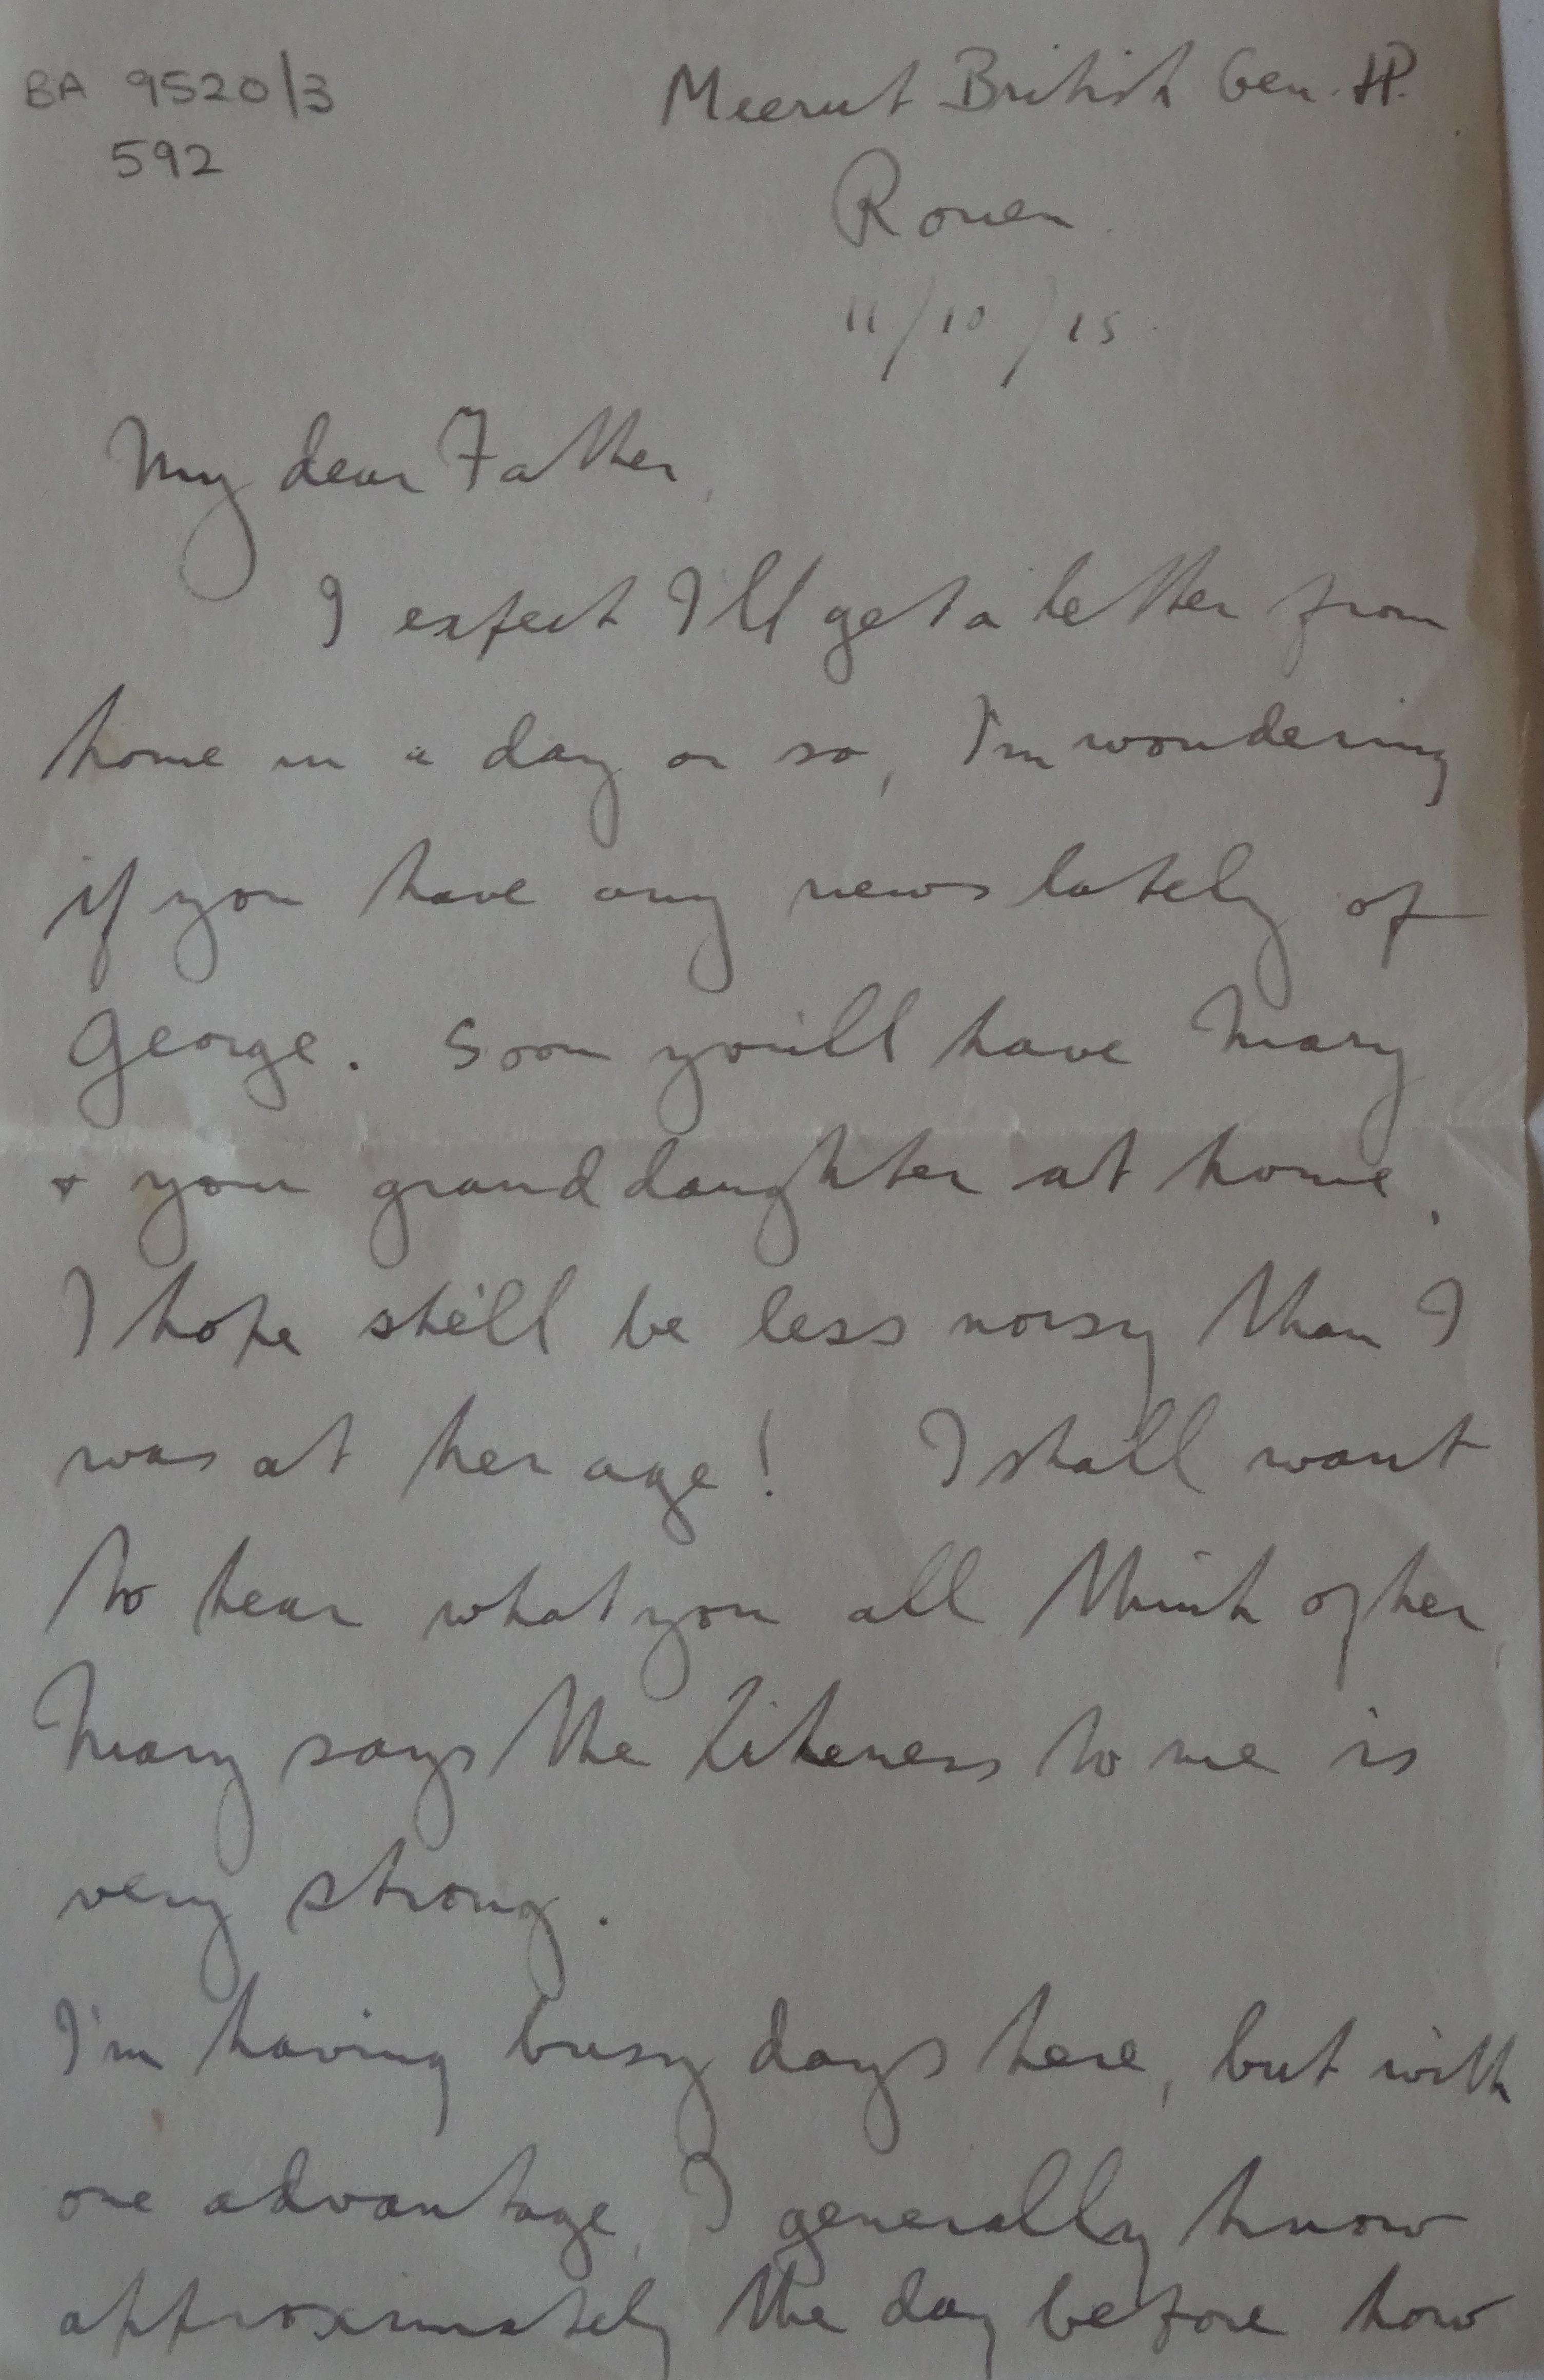 BA 9520/3
592
Meerut British Gen. H.
Rouen.
11/10/15.
My dear Father,
I expect I'll get a letter from
home in a day or so, I'm wondering
if you have any news lately of
George. Soon you'll have Mary
+ your granddaughter at home.
I hope she'll be less noisy than I
was at her age! I shall want
to hear what you all think of her,
Mary says the likeness to me is
very strong.
I'm having busy days here, but with
one advantage, I generally know
approximately the day before how